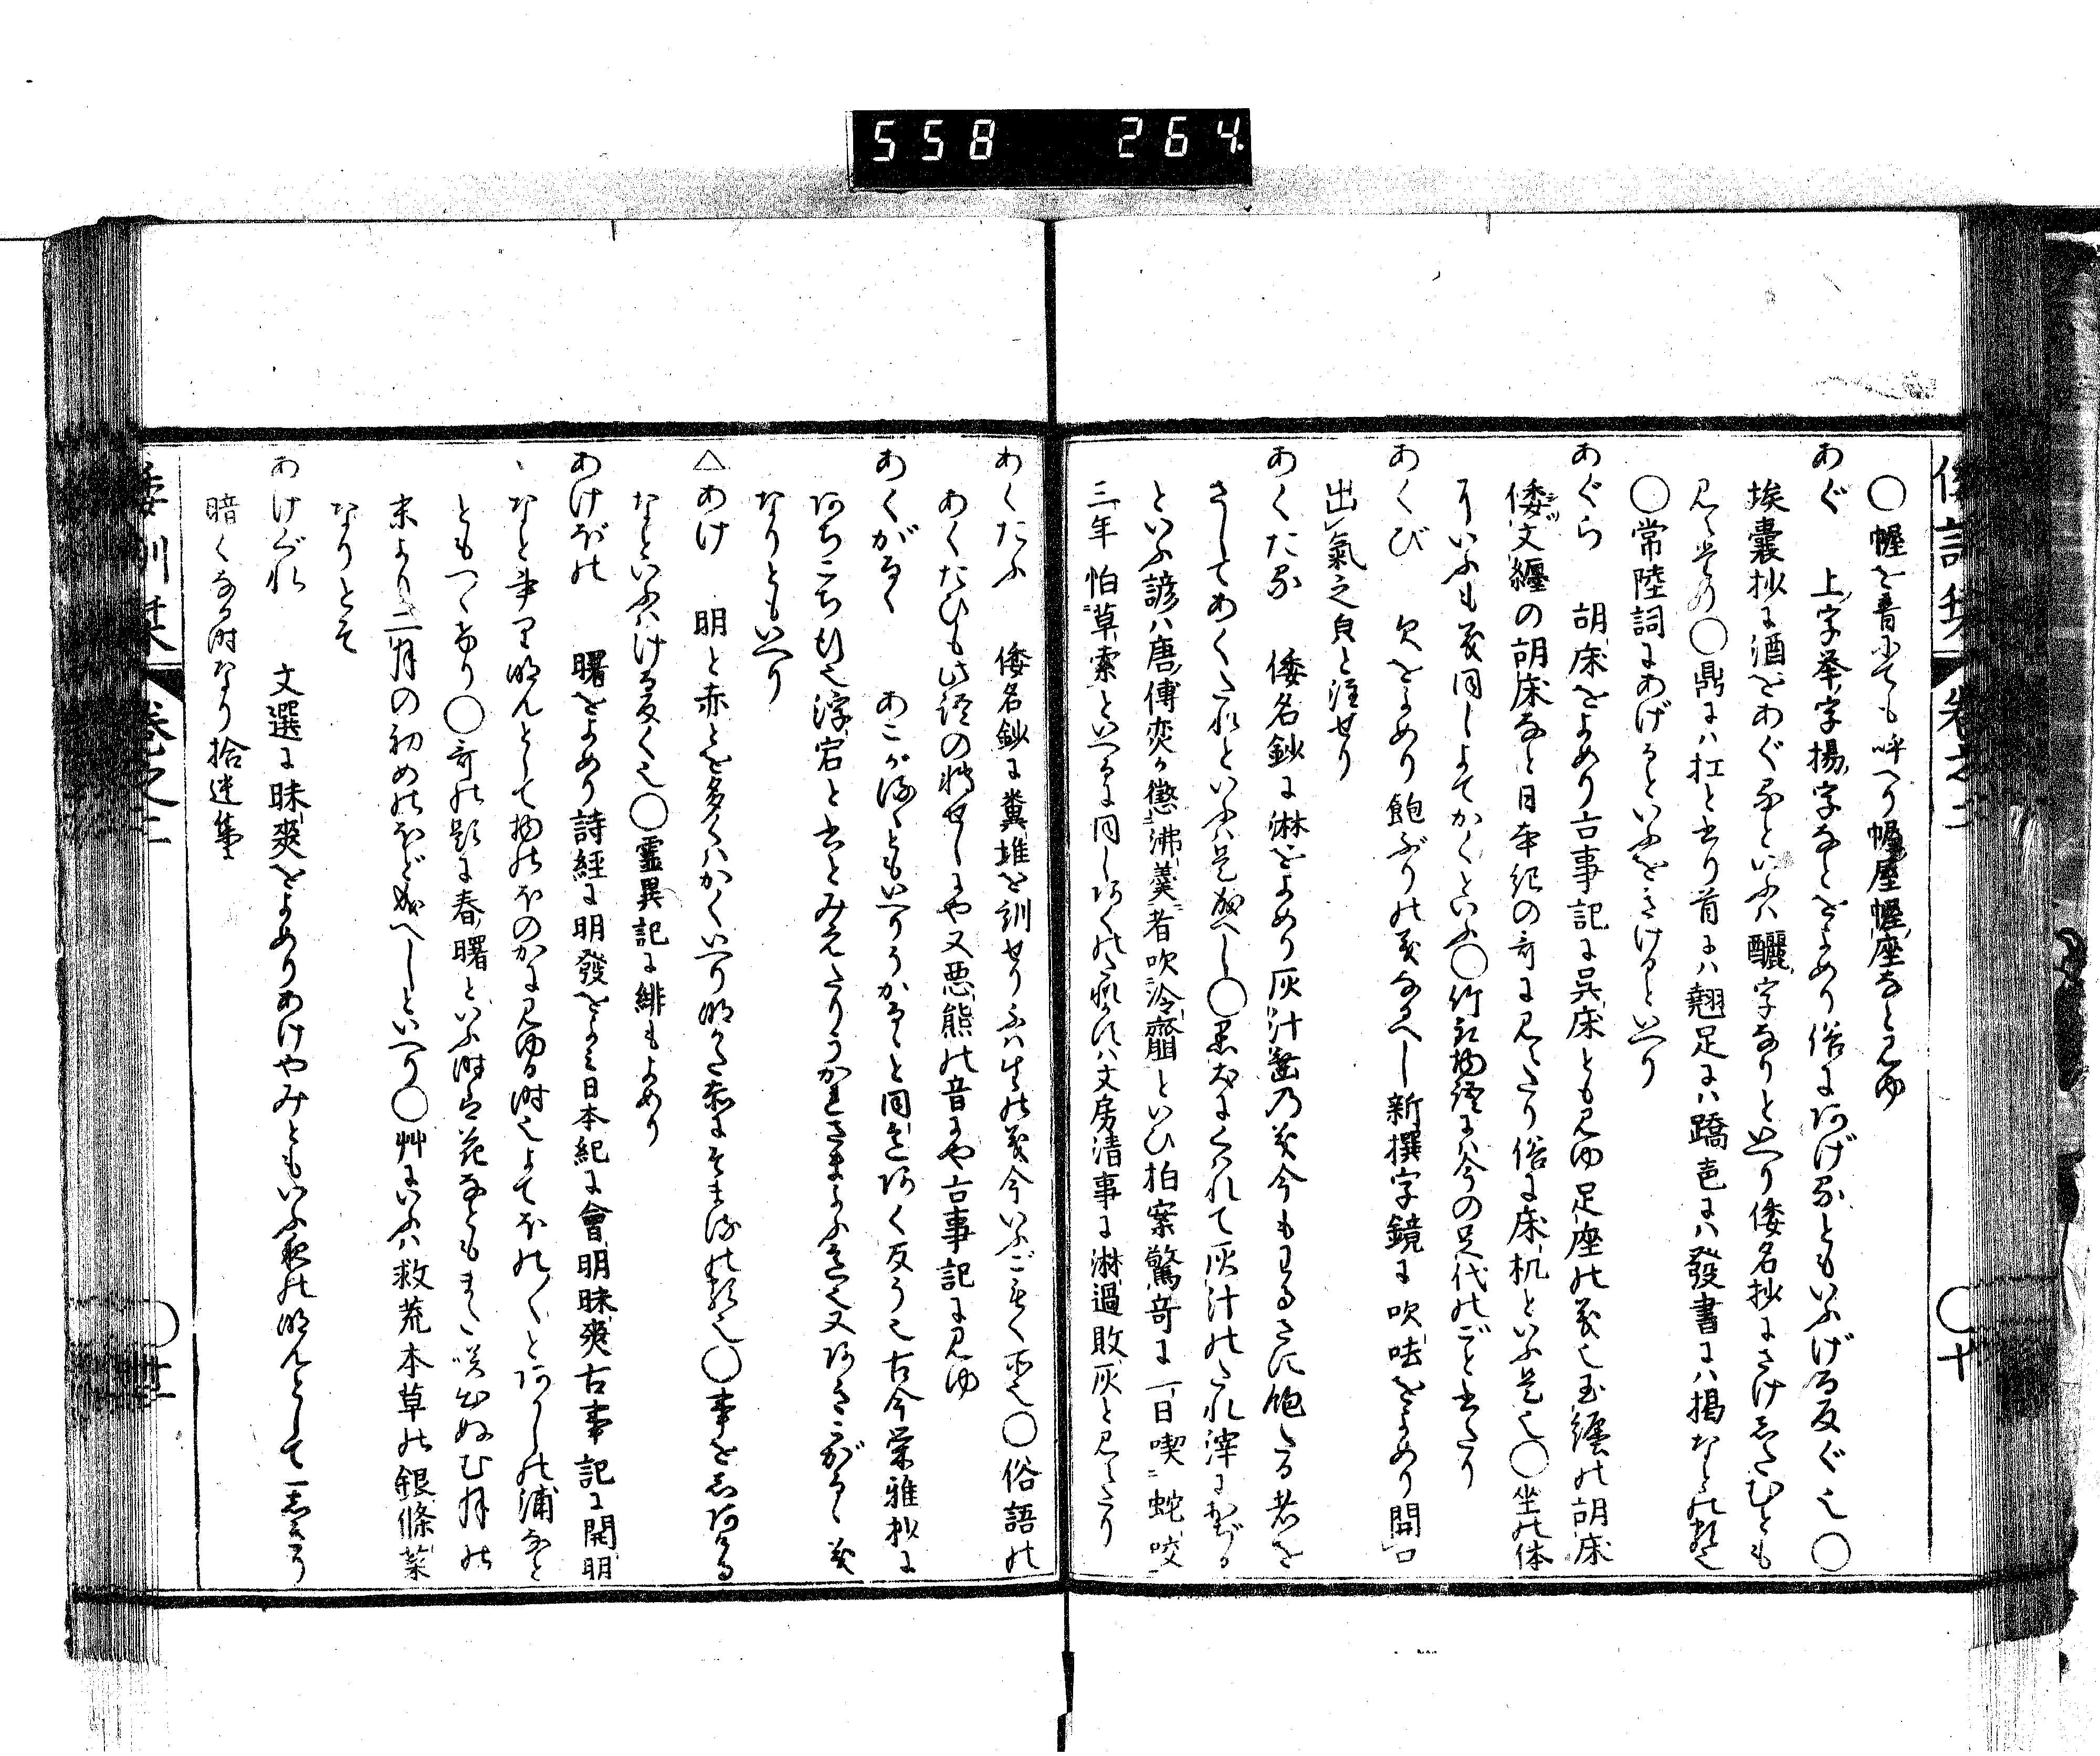 558 264
倭訓栞 巻之二 ○十
○幄を音にても呼へり幄屋幄座なと見ゆ
あぐ 上字挙字揚字なとをよめり俗にあげるともいふげる反ぐ也○
埃嚢抄に酒をあぐるといふハ釃字なりといへり倭名抄にさけしたむとも
見えたり○鼎にハ扛と書り首にハ翹足にハ蹻色にハ發書にハ掲なとの類也
○常陸詞にあげるといふをさけるといへり
あぐら 胡床をよめり古事記に呉床とも見ゆ足座の義也玉纏の胡床
倭文纏の胡床なと日本紀の哥に見えたり俗に床机といふ是也○坐の体
をいふも義同しよてかくといふ○竹取物語にハ今の足代のごと書たり
あくび 欠をよめり飽ぶりの義なるへし新撰字鏡に吹呿をよめり開口
出氣之皃と注せり
あくたる 倭名鈔に淋をよめり灰汁垂の義今もわるさに飽たる者を
さしてあくたれといふハ是成へし○黒犬にくはれて灰汁のたれ滓におぢる
といふ諺ハ唐傅奕か懲沸羹者吹冷齏といひ拍案驚奇に一日喫蛇咬
三年怕草索といへるに同しあくのたれかすハ文房清事に淋過敗灰と見えたり
あくたふ 倭名鈔に糞堆を訓せりふハ生の義今いふごもく所也○俗語の
あくたひも此語の轉せしにや又悪態の音にや古事記に見ゆ
あくがるゝ あこがるゝともいへりうかるゝと同しあく反う也古今栄雅抄に
あちこち行也浮宕と書とみえたりうかれさまよふを也又あさこがるゝ義
なりともいへり
△あけ 明と赤とを多くハかくいへり明かた赤にそまるの類也○事をしあくる
なといふハける反く也○霊異記に緋もよめり
あけぼの 曙をよめり詩經に明發をよみ日本紀に會明昧爽古事記に開明
なと事り明んとして物のほのかに見ゆる時也よてほの〱とあかしの浦なと
ともつゝけり○哥の題に春曙といふ時は花なともまた咲出ぬむ月の
末より二月の初めのほど成へしといへり○艸にいふハ救荒本草の銀條菜
なりとそ
あけぐれ 文選に昧爽をよめりあけやみともいふ夜の明んとして一しきり
暗くなる時なり拾遺集に
倭訓栞 巻之二